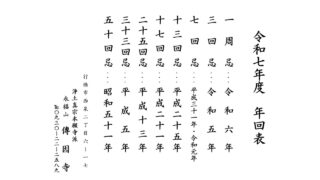 令和七年度　年回表
一周忌…令和六年
三回忌…令和五年
七回忌…平成三十一年・令和元年
十三回忌…平成二十五年
十七回忌…平成二十一年
二十五回忌…平成十三年
三十三回忌…平成五年
五十回忌…昭和五十一年
行橋市西泉二丁目六ー一七
浄土真宗本願寺派
永福山　傳因寺